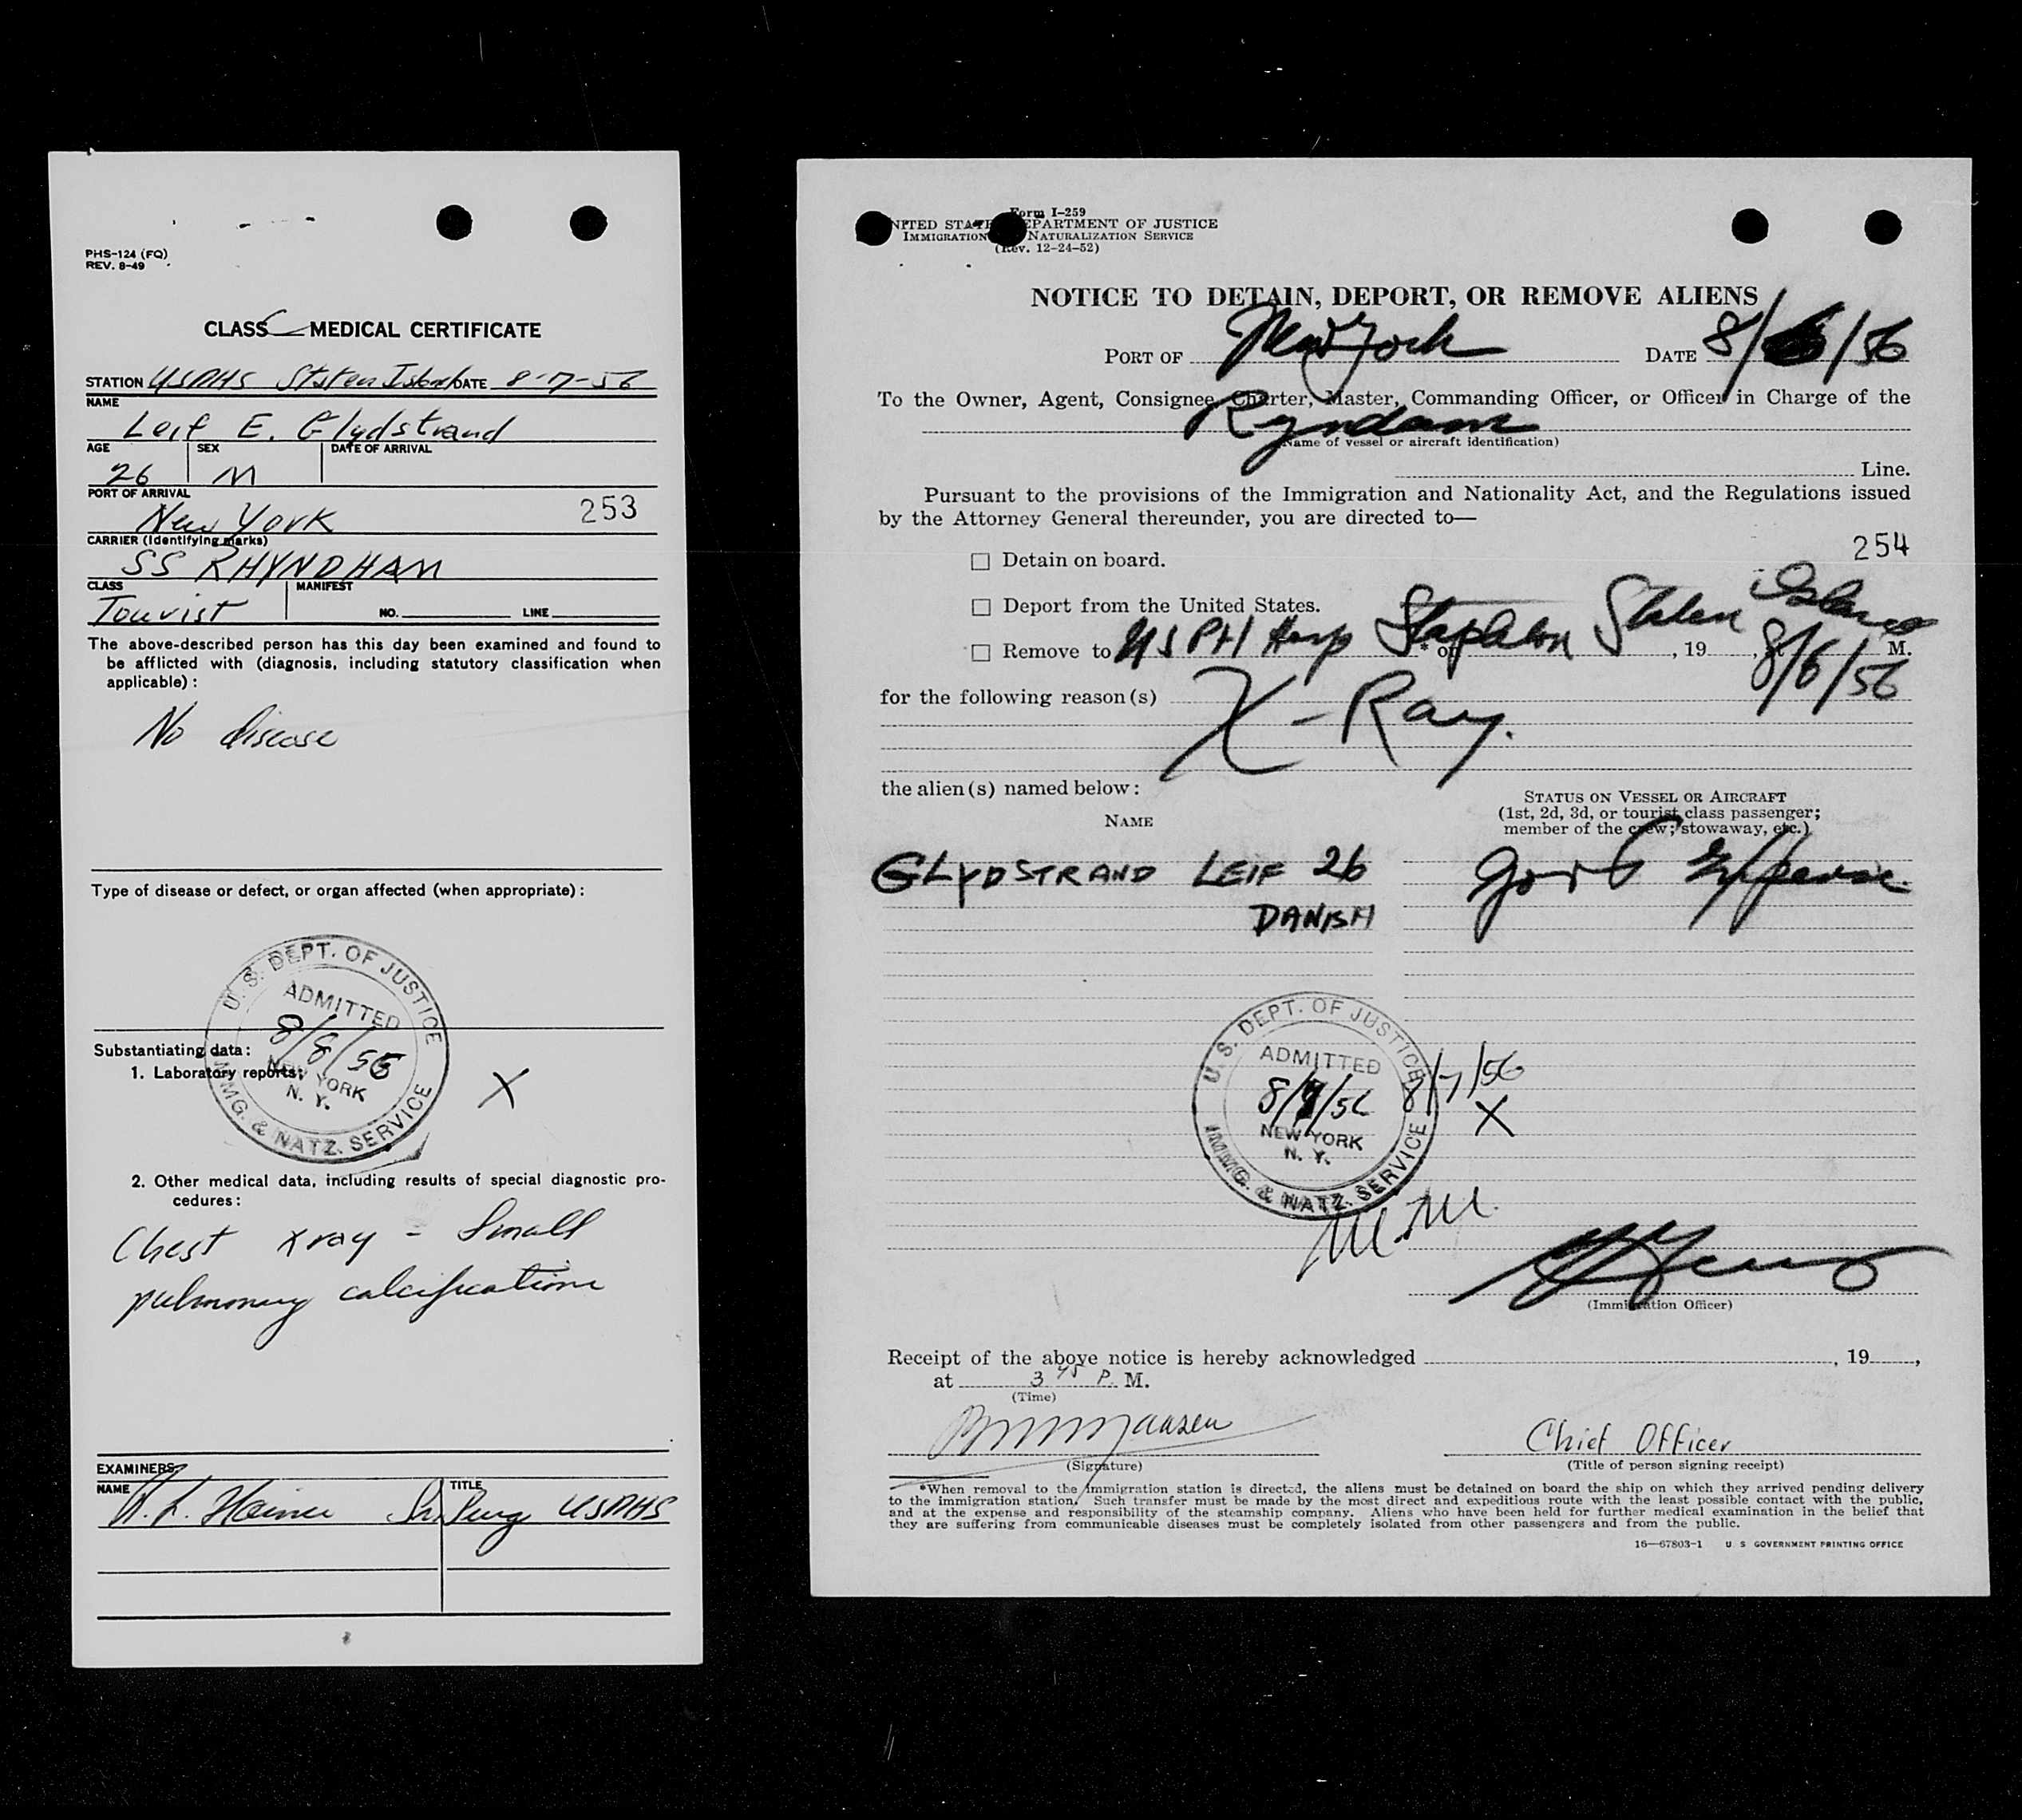 PHS-124 (FQ)
REV. 8-49
CLASS C MEDICAL CERTIFICATE
STATION USPHS Staten Island DATE 8-7-56
NAME
Leif E. Glydstrand
AGE SEX DATE OF ARRIVAL
26 M
PORT OF ARRIVAL
New York 253
CARRIER (Identifying marks)
SS RHYNDHAM
CLASS MANIFEST
Tourist NO. LINE
The above-described person has this day been examined and found to
be afflicted with (diagnosis, including statutory classification when
applicable) :
No disease
Type of disease or defect, or organ affected (when appropriate) :
U. S. DEPT. OF JUSTICE
ADMITTED
8/8/56
NEW YORK
N. Y.
IMMG. & NATZ. SERVICE
Substantiating data:
1. Laboratory reports:
X
2. Other medical data, including results of special diagnostic pro-
cedures:
Chest xray - Small
pulmonary calcifications
EXAMINERS
NAME TITLE
USPHS
Form I-259
UNITED STATES DEPARTMENT OF JUSTICE
IMMIGRATION NATURALIZATION SERVICE
(Rev. 12-24-52)
NOTICE TO DETAIN, DEPORT, OR REMOVE ALIENS
PORT OF New York DATE 8/6/56
To the Owner, Agent, Consignee, Charter, Master, Commanding Officer, or Officer in Charge of the
Ryndam
(Name of vessel or aircraft identification)
Line.
Pursuant to the provisions of the Immigration and Nationality Act, and the Regulations issued
by the Attorney General thereunder, you are directed to—
254
☐ Detain on board.
☐ Deport from the United States.
☐ Remove to USPH Hosp Stapleton Staten Island * on , 19 , 8/6/56 M.
for the following reason(s) X-Ray.
the alien(s) named below:
NAME
STATUS ON VESSEL OR AIRCRAFT
(1st, 2d, 3d, or tourist class passenger;
member of the crew; stowaway, etc.)
GLYDSTRAND LEIF 26 Gov't Expense
DANISH
U. S. DEPT. OF JUSTICE
ADMITTED
8/7/56 8/7/56
NEW YORK X
N. Y.
IMMG. & NATZ. SERVICE
M.M.
(Immigration Officer)
Receipt of the above notice is hereby acknowledged , 19 ,
at 3 45 P. M.
(Time)
Chief Officer
(Signature) (Title of person signing receipt)
*When removal to the immigration station is directed, the aliens must be detained on board the ship on which they arrived pending delivery
to the immigration station. Such transfer must be made by the most direct and expeditious route with the least possible contact with the public,
and at the expense and responsibility of the steamship company. Aliens who have been held for further medical examination in the belief that
they are suffering from communicable diseases must be completely isolated from other passengers and from the public.
16—67803-1 U S GOVERNMENT PRINTING OFFICE